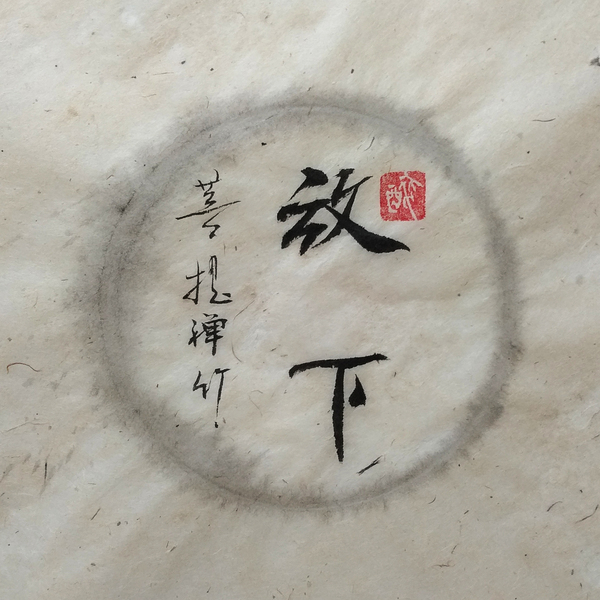 放下
菩提禅竹